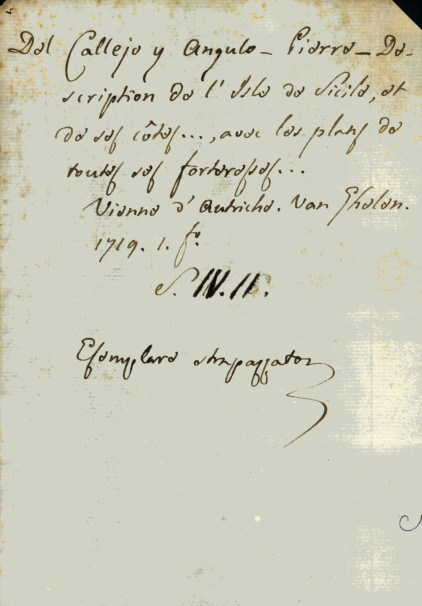 Del Callejo y Angulo - Pierre - De-
scription de l'Isle de Sicile, et
de ses côtes..., avec les plans de
toutes ses forteresses...
Vienne d'Autriche. Van Ghelen.
1719. 1. fo.
S. IV. 11.
Esemplare strapazzato